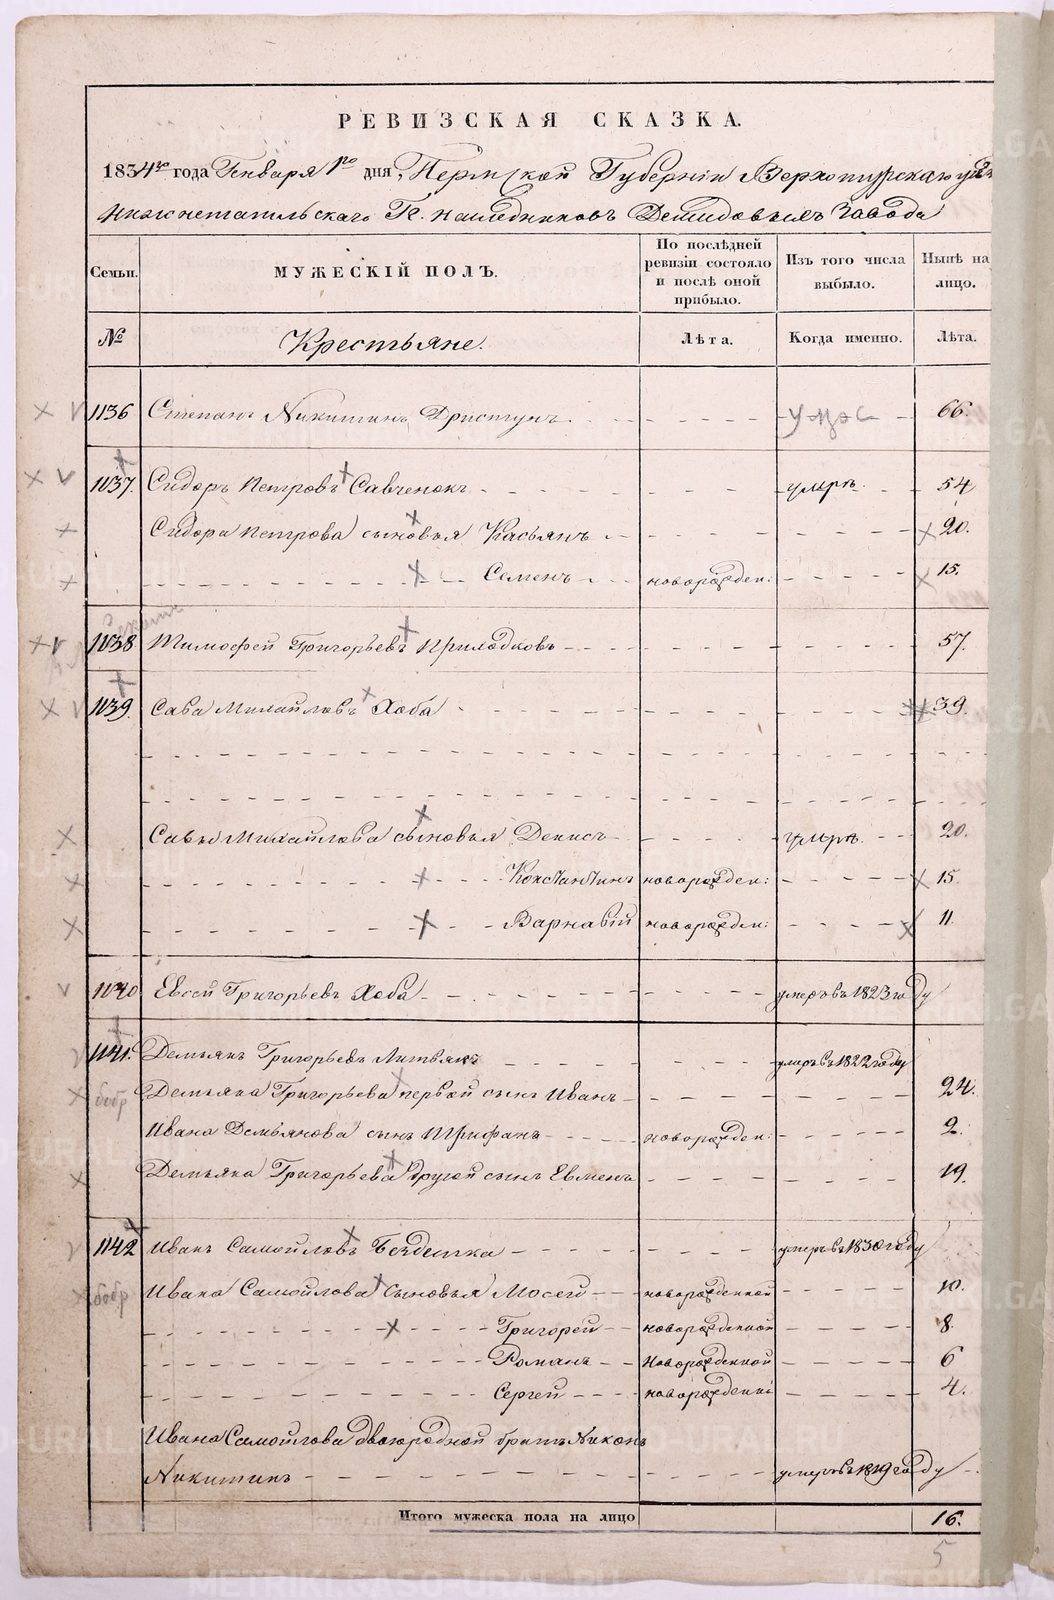 РЕВИЗСКАЯ СКАЗКА.
1834го года Генваря 1го дня, Пермской Губернии Верхотурскаго
Нижнетагильскаго Г. наследниковъ Демидовыхъ Завода
Семьи. МУЖЕСКІЙ ПОЛЪ. По послѣдней ревизіи состояло и послѣ оной прибыло. Изъ того числа выбыло. Нынѣ на лицо.
№ Крестьяне. Лѣта. Когда именно. Лѣта.
1136 Степанъ Никитинъ Дристунъ 66.
1137. Сидоръ Петровъ Савченокъ умре. 54
Сидора Петрова сыновья Касьянъ 20.
Семенъ новорожден: 15.
1138 Тимофей Григорьевъ Прилодковъ 57.
1139. Сава Михайловъ Хоба 39.
Савы Михайлова сыновья Денисъ умре. 20.
Константинъ новорожден: 15
Варнавій новорожден: 11.
1140 Евсей Григорьевъ Хоба умеръ въ 1823 году
1141. Демьянъ Григорьевъ Литвякъ умеръ въ 1822 году
Демьяна Григорьева первой сынъ Иванъ 24.
Ивана Демьянова сынъ Трифанъ новорожден: 2.
Демьяна Григорьева другой сынъ Евменъ 19.
1142 Иванъ Самойловъ Безделка умеръ въ 1830 году
Ивана Самойлова сыновья Мосей новорожденной 10.
Григорей новорожденной 8.
Романъ новорожденной 6
Сергей новорожденні 4.
Ивана Самойлова двоюродной братъ Никонъ
Никитинъ умеръ въ 1819 году
Итого мужеска пола на лицо 16.
5